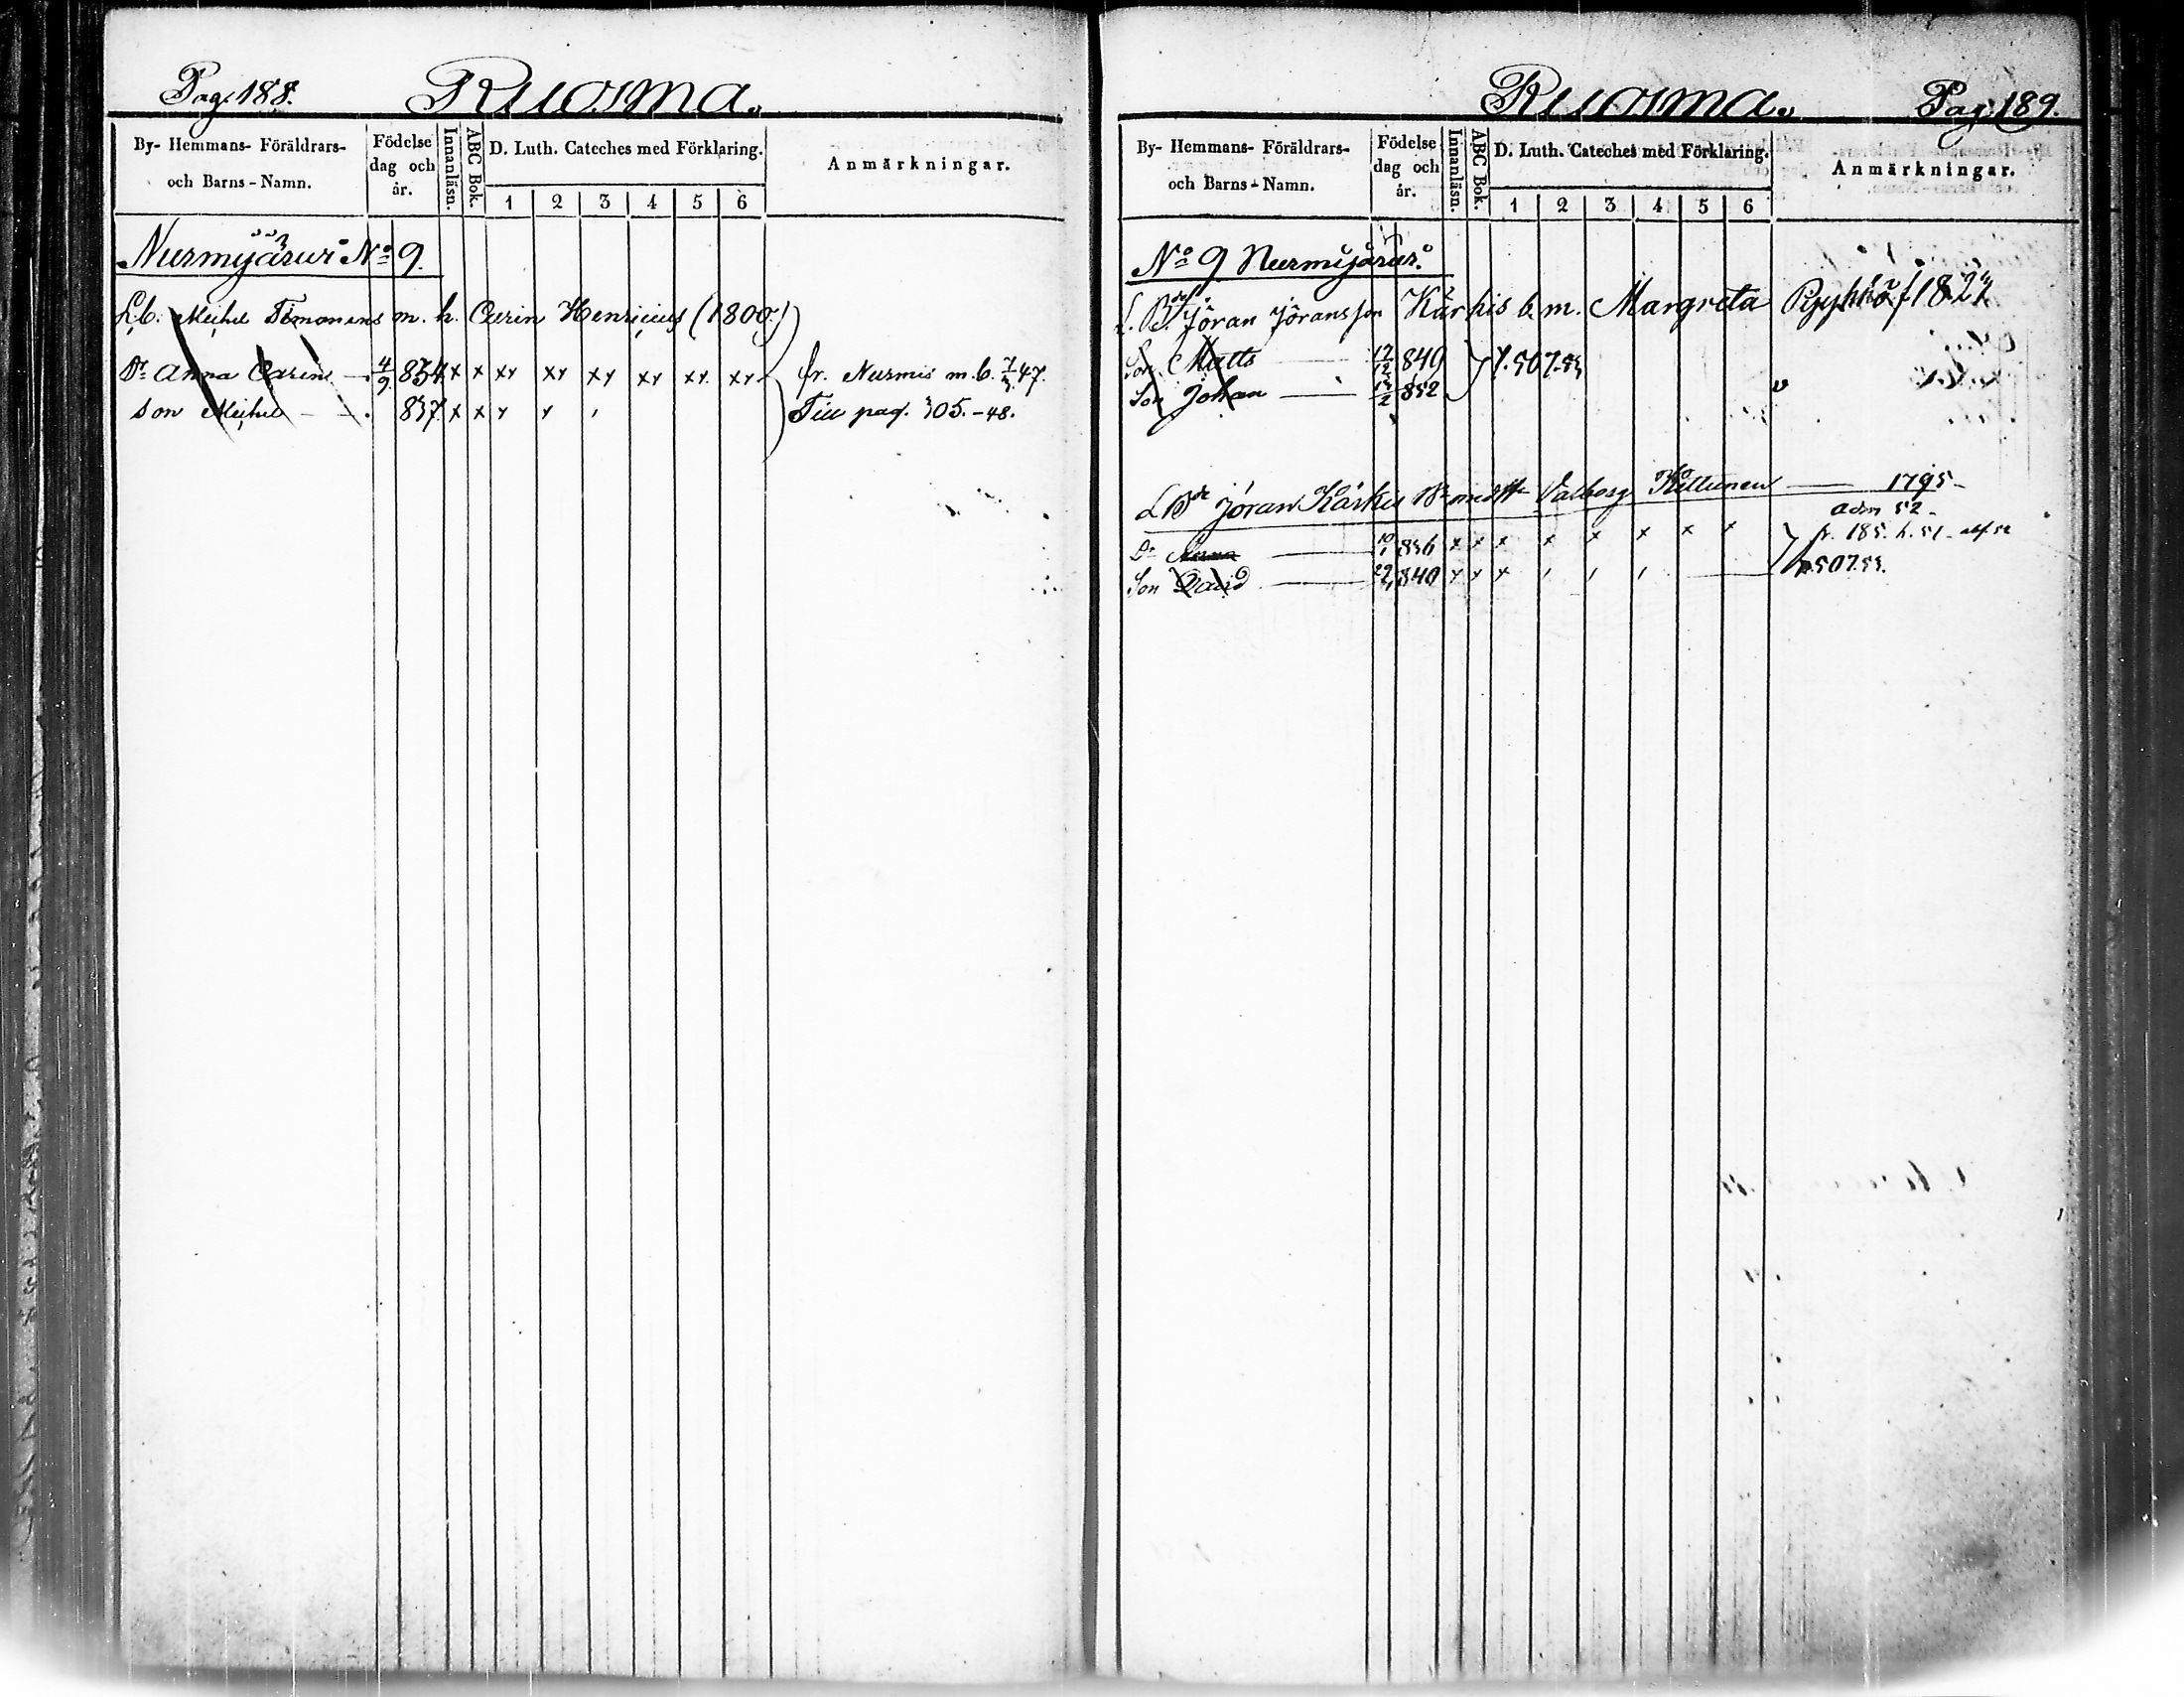 Pag. 188. Ruosma.
By- Hemmans- Föräldrars- och Barns-Namn. Födelse dag och år. Innanläsn. ABC Bok. D. Luth. Cateches med Förklaring. Anmärkningar.
1 2 3 4 5 6
Nurmijärvi No 9.
Lb. Michel Timonens m. h. Carin Henricius (1800.)
Dr Anna Carin 4/9 834 x x xx xx xx xx xx xx fr. Nurmis m.b. 47.
Son Michel 837 x x x x Till pag. 305.-48.
Ruosma. Pag. 189.
By- Hemmans- Föräldrars- och Barns-Namn. Födelse dag och år. Innanläsn. ABC Bok. D. Luth. Cateches med Förklaring. Anmärkningar.
1 2 3 4 5 6
No 9 Nurmijärvi.
L. Bdr Jöran Jöransson Kärkis b. m. Margreta 182
Son Matts 849 507.53
Son Johan 852
LBdr Jöran Kärkis Valborg Kettunen 1795
adm 52.
Dr Anna 10/1 836 x x x x x x x x fr. 185. h. 51
Son David 840 x x x 507.53.